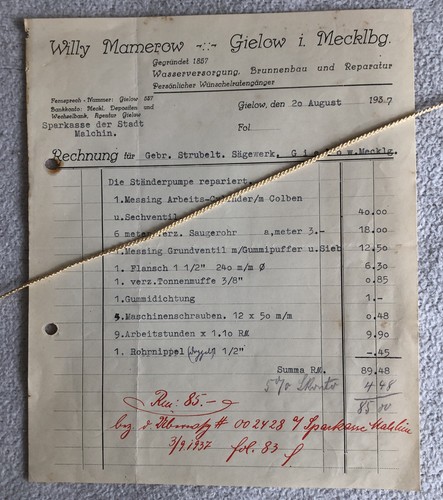 Willy Mamerow -::- Gielow i. Mecklbg.
Gegründet 1857
Wasserversorgung, Brunnenbau und Reparatur
Persönlicher Wünschelrutengänger
Fernsprech-Nummer: Gielow 557
Bankkonto: Meckl. Depositen und
Wechselbank, Agentur Gielow
Sparkasse der Stadt
Malchin.
Gielow, den 20 August 1937
Fol.
Rechnung für Gebr. Strubelt. Sägewerk, w.Mecklg.
Die Ständerpumpe repariert.
1.Messing Arbeits-Cylinder/m Colben
u.Sechventil 40.00
6 meter verz. Saugerohr a,meter 3.- 18.00
1.Messing Grundventil m/Gummipuffer u.Sieb 12.50
1. Flansch 1 1/2" 240 m/m Ø 6.30
1. verz.Tonnenmuffe 3/8" 0.85
1.Gummidichtung 1.-
4.Maschinenschrauben. 12 x 50 m/m 0.48
9.Arbeitstunden x 1.10 RM 9.90
1. Rohrnippel 1/2" -.45
Summa RM. 89.48
5% Skonto 4 48
85 00
Rm: 85.-
# 002428 Sparkasse Malchin
3/9.1937 fol. 83